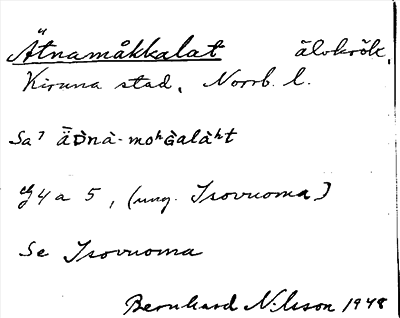 Ätnamåkkalat älvkrök,
Kiruna stad, Norrb. l.
Sa⁷ äDnà-moʰGalàʰt
4 a 5, (ung. Isovuoma)
Se Isovuoma
Bernhard Nilsson 1948